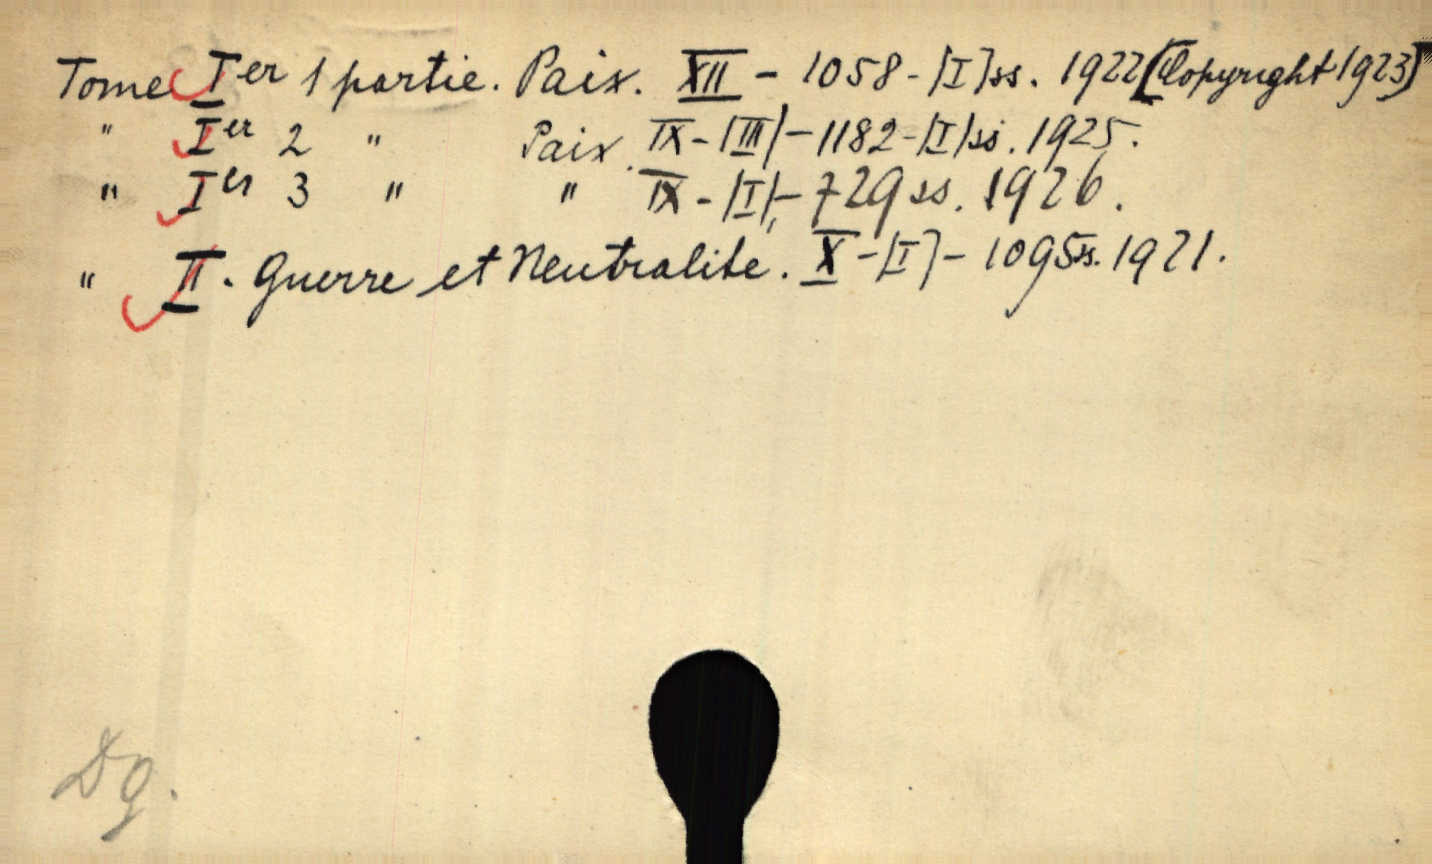 Tome Ier 1 partie. Paix. XII - 1058 - [I] ss. 1922 [Copyright 1923]
" Ier 2 " Paix. IX - [III] - 1182 - [I] ss. 1925.
" Ier 3 " " IX - [I] - 729 ss. 1926.
" II. Guerre et Neutralite. X - [I] - 1095 ss. 1921.
Dg.